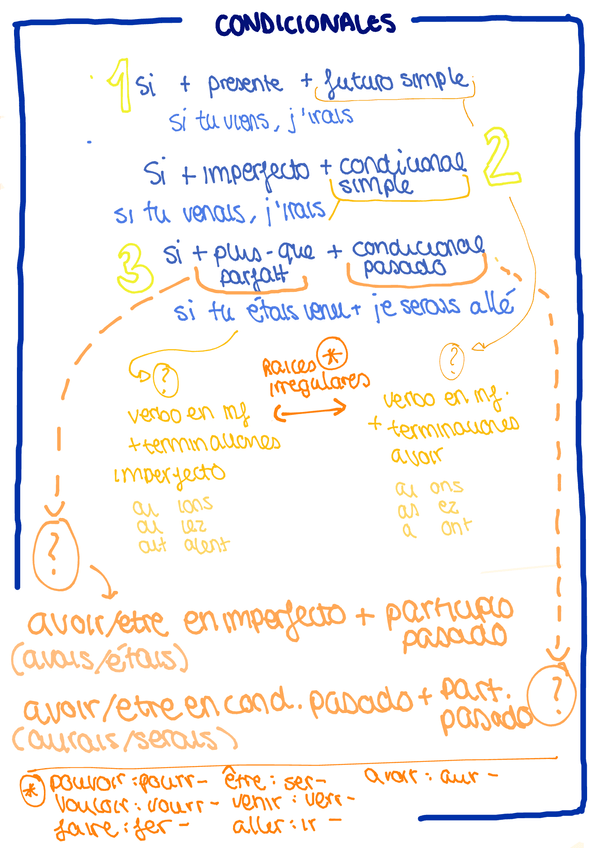 CONDICIONALES
1 Si + presente + futuro simple
si tu viens, j'irais
2 Si + imperfecto + condicional simple
si tu venais, j'irais
3 si + plus-que parfait + condicional pasado
si tu étais venu + je serais allé
?
verbo en inf
+ terminaciones
imperfecto
ai ions
ai iez
ait aient
Raices *
irregulares
?
verbo en inf.
+ terminaciones
avoir
ai ons
as ez
a ont
?
avoir/etre en imperfecto + participio
pasado
(avais/étais)
avoir/etre en cond. pasado + part.
pasado
?
(aurais/serais)
* pouvoir : pourr- être : ser- avoir : aur-
vouloir : vourr- venir : verr-
faire : fer- aller : ir-